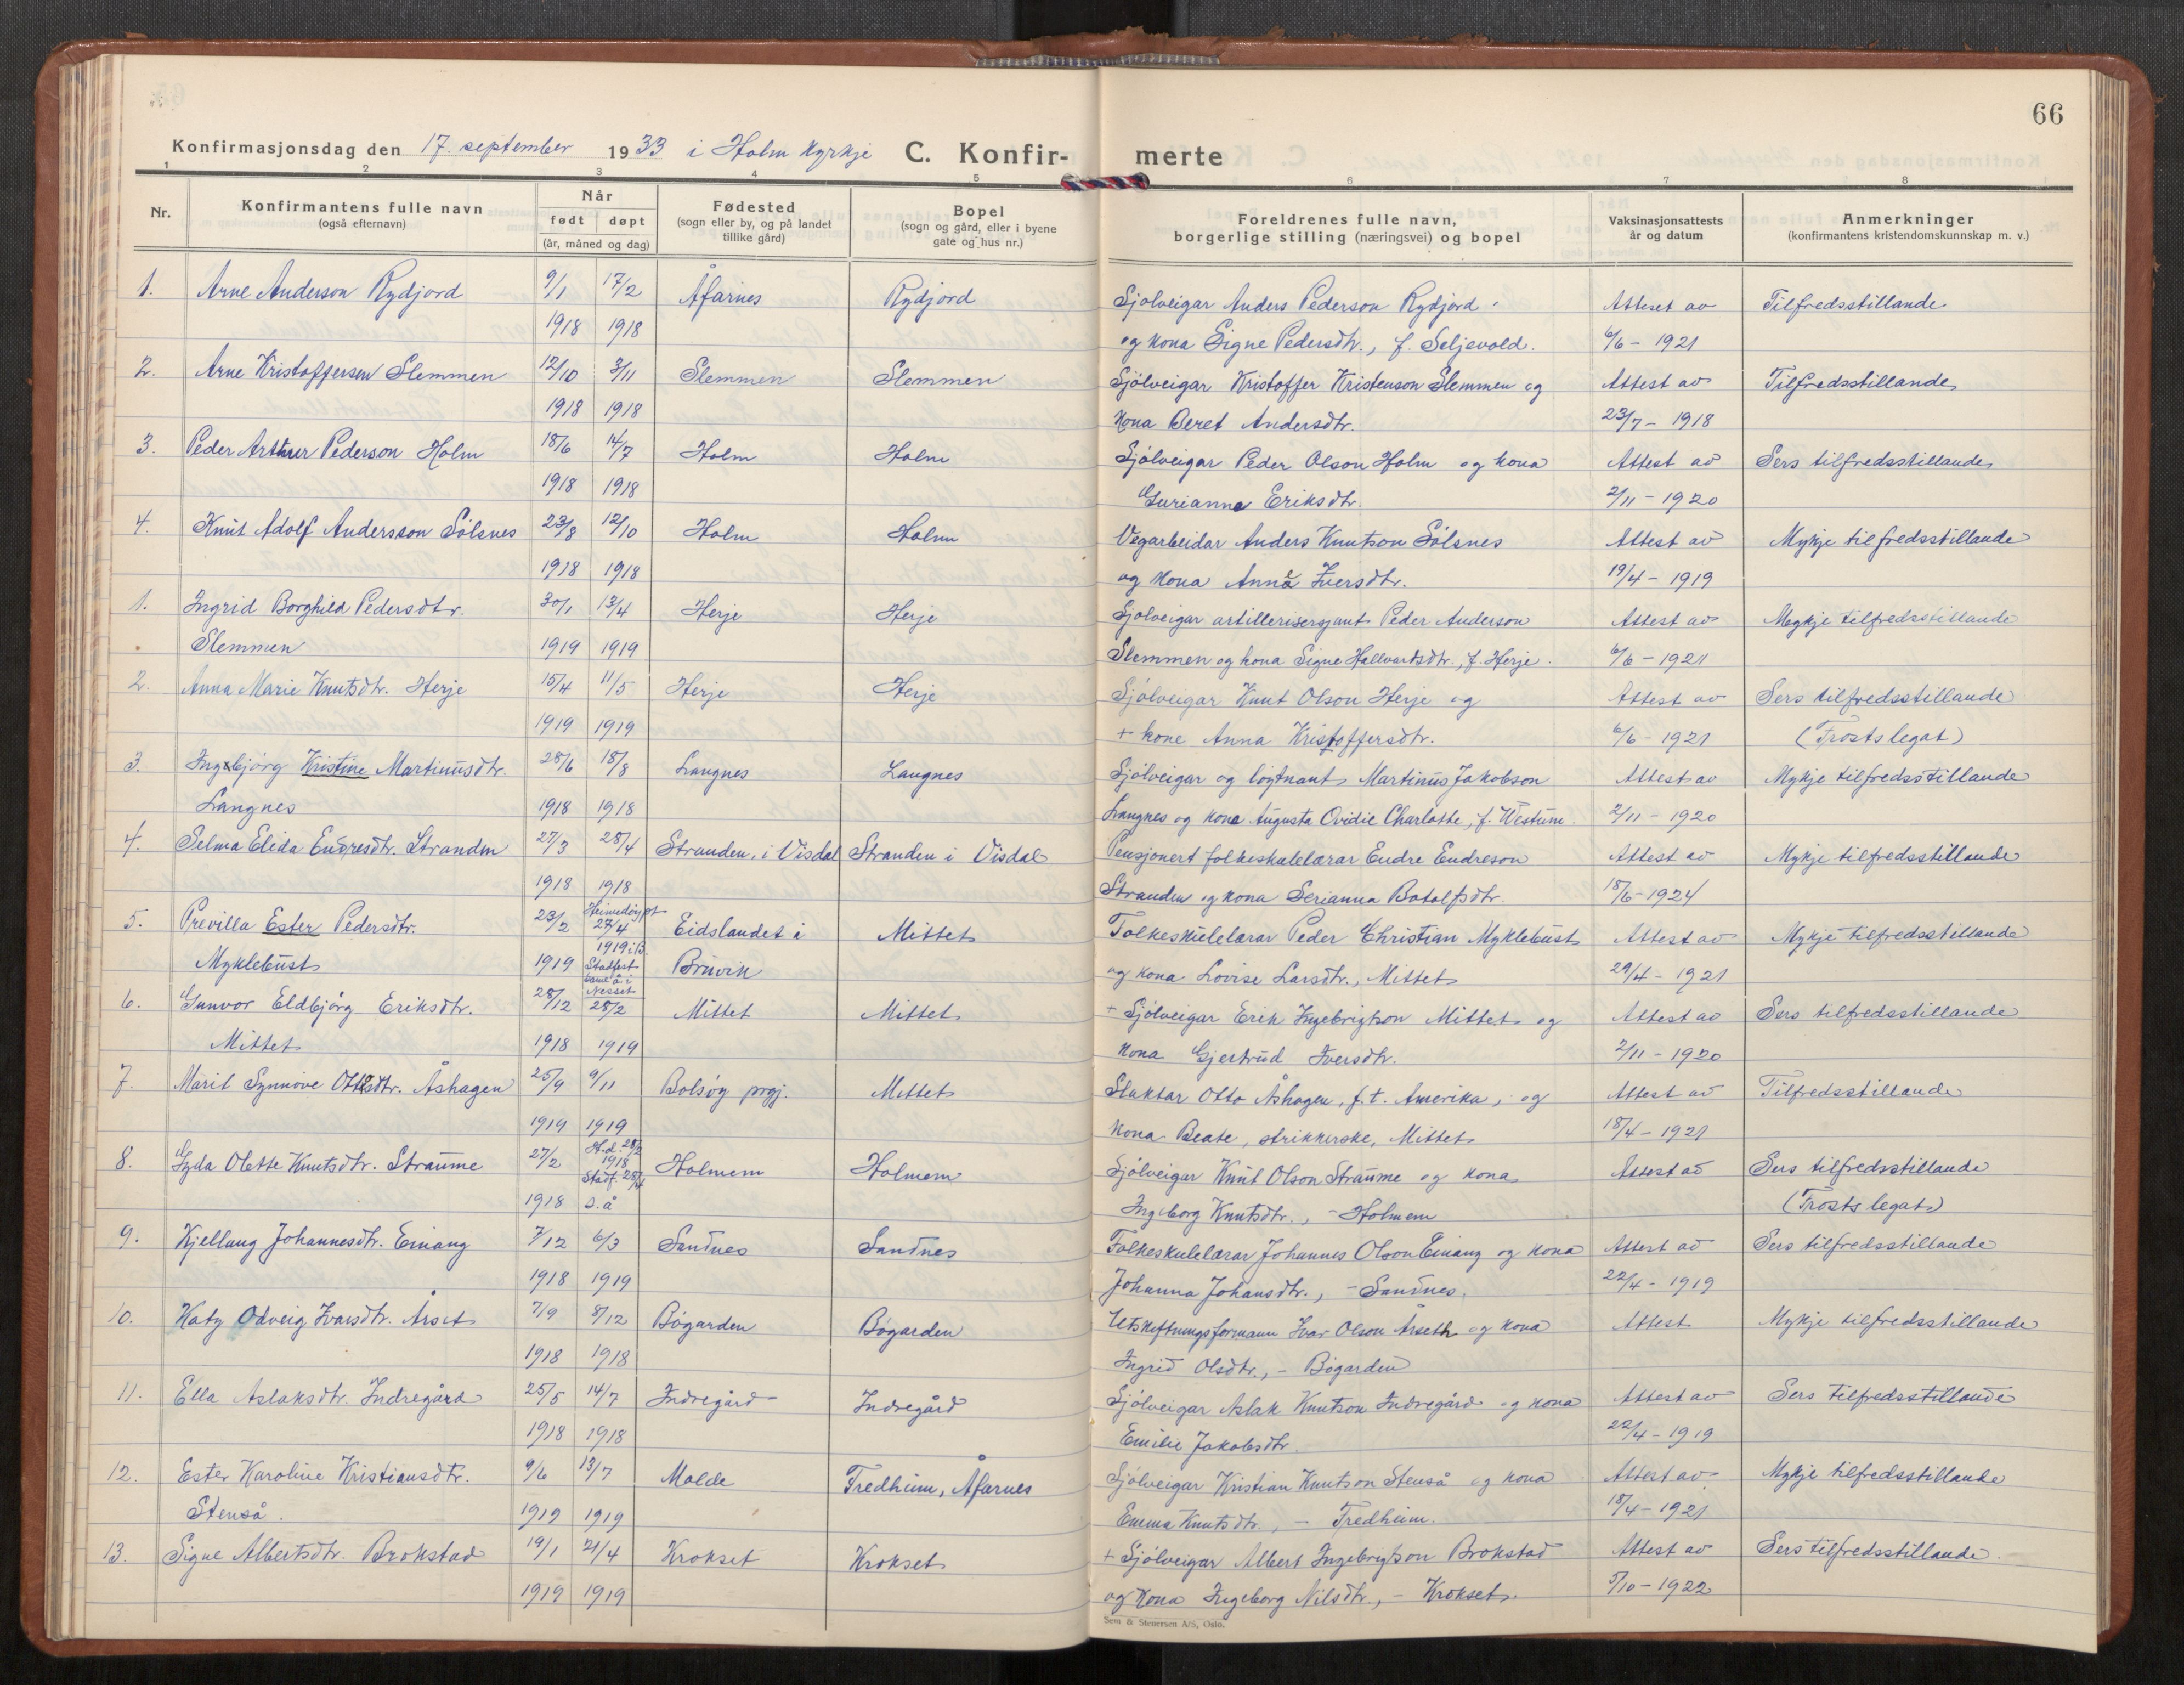 66
Konfirmasjonsdag den 17. september 1933 i Holm kyrkje C. Konfir- merte
1 2 3 4 5 6 7 8
Nr. Konfirmantens fulle navn (også efternavn) Når født døpt (år, måned og dag) Fødested (sogn eller by, og på landet tillike gård) Bopel (sogn og gård, eller i byene gate og hus nr.) Foreldrenes fulle navn, borgerlige stilling (næringsvei) og bopel Vaksinasjonsattests år og datum Anmerkninger (konfirmantens kristendomskunnskap m. v.)
1. Arne Anderson Rydjord 9/1 17/2 Åfarnes Rydjord Sjølveigar Anders Pederson Rydjord Attest av Tilfredsstillande
1918 1918 og kona Signe Pedersdtr., f. Seljevold. 6/6 - 1921
2. Arne Kristoffersen Slemmen 12/10 3/11 Slemmen Slemmen Sjølveigar Kristoffer Kristenson Slemmen og Attest av Tilfredsstillande
1918 1918 kona Beret Andersdtr. 23/7 - 1918
3. Peder Arthur Pederson Holm 18/6 14/7 Holm Holm Sjølveigar Peder Olson Holm og kona Attest av Sers tilfredsstillande
1918 1918 Gurianna Eriksdtr. 2/11 - 1920
4. Knut Adolf Andersson Sølsnes 23/8 12/10 Holm Holm Vegarbeidar Anders Knutson Sølsnes Attest av Mykje tilfredsstillande
1918 1918 og kona Anna Iversdtr. 19/4 - 1919
1. Ingrid Borghild Pedersdtr. 30/1 13/4 Herje Herje Sjølveigar artillerisersjant Peder Anderson Attest av Mykje tilfredsstillande
Slemmen 1919 1919 Slemmen og kona Signe Hallvardsdtr., f. Herje. 6/6 - 1921
2. Anna Marie Knutsdtr. Herje 15/4 11/5 Herje Herje Sjølveigar Knut Olson Herje og Attest av Sers tilfredsstillande
1919 1919 + kone Anna Kristoffersdtr. 6/6 - 1921 (Trosts legat)
3. Ingebjørg Kristine Martinusdtr. 28/6 18/8 Langnes Langnes Sjølveigar og løytnant Martinus Jakobson Attest av Mykje tilfredsstillande
Langnes 1918 1918 Langnes og kona Augusta Ovidie Charlotte, f. Westum. 2/11 - 1920
4. Selma Elida Endresdtr. Stranden 27/3 28/4 Stranden, i Visdal Stranden i Visdal Pensjonert folkeskulelærar Endre Endreson Attest av Mykje tilfredsstillande
1918 1918 Stranden og kona Serianna Botolfsdtr. 18/6 - 1924
5. Previlla Ester Pedersdtr. 23/2 Heimedøypt 27/4 Eidslandet i Mittet Folkeskulelærar Peder Christian Myklebust Attest av Mykje tilfredsstillande
Myklebust 1919 1919 i B. Stadfest same å. i Nesset Bruvik og kona Lovise Larsdtr., Mittet 29/4 - 1921
6. Gunvor Eldbjørg Eriksdtr. 28/12 28/2 Mittet Mittet + Sjølveigar Erik Ingebrigtson Mittet og Attest av Sers tilfredsstillande
Mittet 1918 1919 kona Gjertrud Iversdtr. 2/11 - 1920
7. Marit Synnøve Ottosdtr. Åshagen 25/9 9/11 Bolsøy prgj. Mittet Slaktar Otto Åshagen, f. t. Amerika, og Attest av Tilfredsstillande
1919 1919 kona Beate, strikkerske, Mittet 18/4 - 1921
8. Gyda Olette Knutsdtr. Straume 27/2 H.d. 28/2 1918 Stadf. 28/4 Holmem Holmem Sjølveigar Knut Olson Straume og kona Attest av Sers tilfredsstillande
1918 s. å Ingeborg Knutsdtr., - Holmem (Trosts legat)
9. Kjellaug Johannesdtr. Einang 7/12 6/3 Sandnes Sandnes Folkeskulelærar Johannes Olson Einang og kona Attest av Sers tilfredsstillande
1918 1919 Johanna Johansdtr., - Sandnes. 22/4 - 1919
10. Katy Odveig Ivarsdtr. Årset 7/9 8/12 Bøgarden Bøgarden Utskiftningsformann Ivar Olson Årseth og kona Attest Mykje tilfredsstillande
1918 1918 Ingrid Olsdtr., - Bøgarden
11. Ella Aslaksdtr. Indregård 25/5 14/7 Indregård Indregård Sjølveigar Aslak Knutson Indregård og kona Attest av Sers tilfredsstillande
1918 1918 Emilie Jakobsdtr. 22/4 - 1919
12. Ester Karoline Kristiansdtr. 9/6 13/7 Molde Fredheim, Åfarnes Sjølveigar Kristian Knutson Stenså og kona Attest av Mykje tilfredsstillande
Stenså. 1919 1919 Emma Knutsdtr., - Fredheim. 18/4 - 1921
13. Signe Albertsdtr. Brokstad 19/1 21/4 Krokset Krokset + Sjølveigar Albert Ingebrigtson Brokstad Attest av Sers tilfredsstillande.
1919 1919 og kona Ingeborg Nilsdtr., - Krokset. 5/10 - 1922
Sem & Stenersen A/S, Oslo.